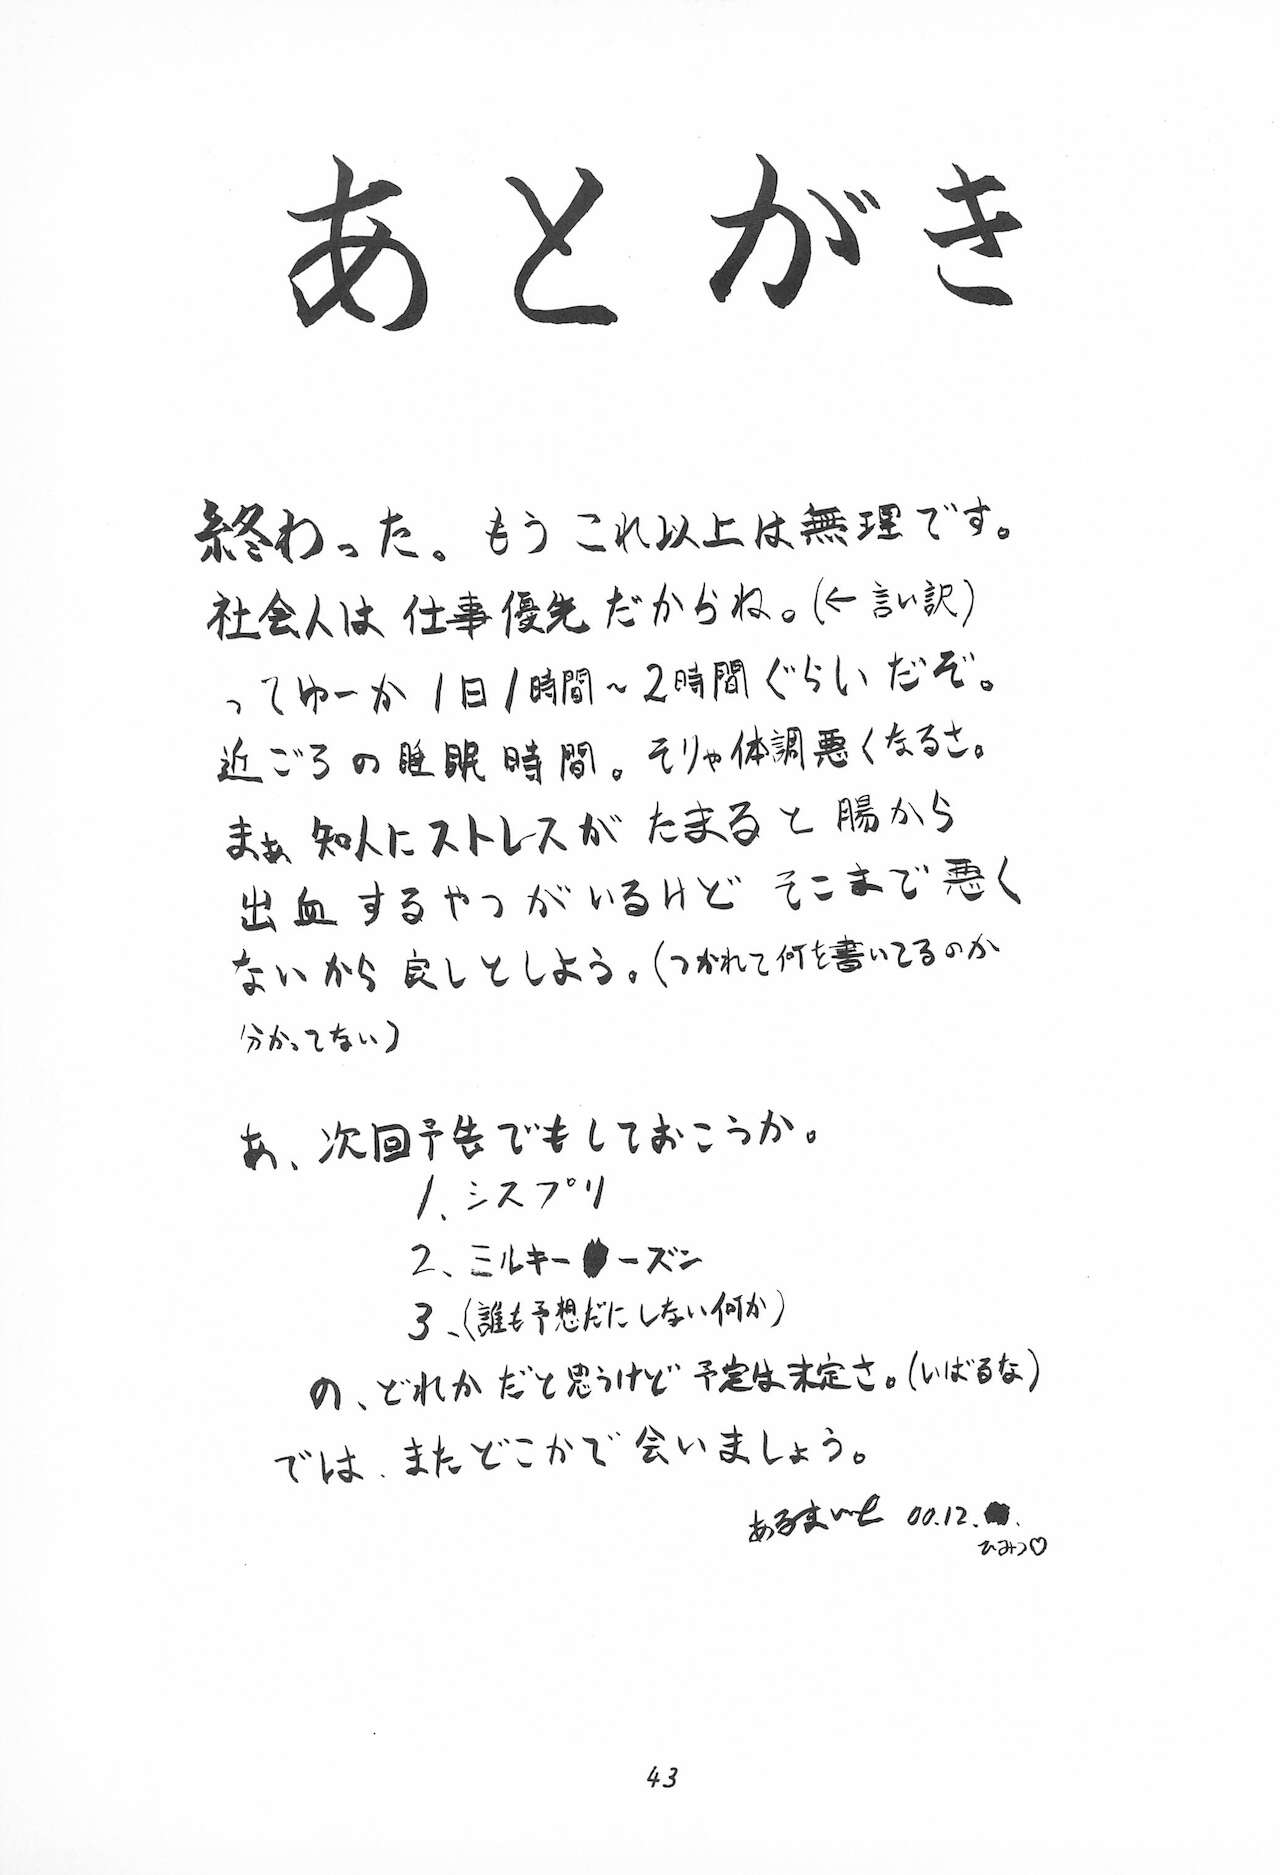 あとがき
終わった。もうこれ以上は無理です。
社会人は仕事優先だからね。(←言い訳)
ってゆーか1日1時間~2時間ぐらいだぞ。
近ごろの睡眠時間。そりゃ体調悪くなるさ。
まぁ知人にストレスがたまると腸から
出血するやつがいるけどそこまで悪く
ないから良しとしよう。(つかれて何を書いてるのか
分かってない)
あ、次回予告でもしておこうか。
1、シスプリ
2、ミルキー●ーズン
3、(誰も予想だにしない何か)
の、どれかだと思うけど予定は未定さ。(いばるな)
では、またどこかで会いましょう。
あるまいと 00.12.●.
ひみつ♡
43